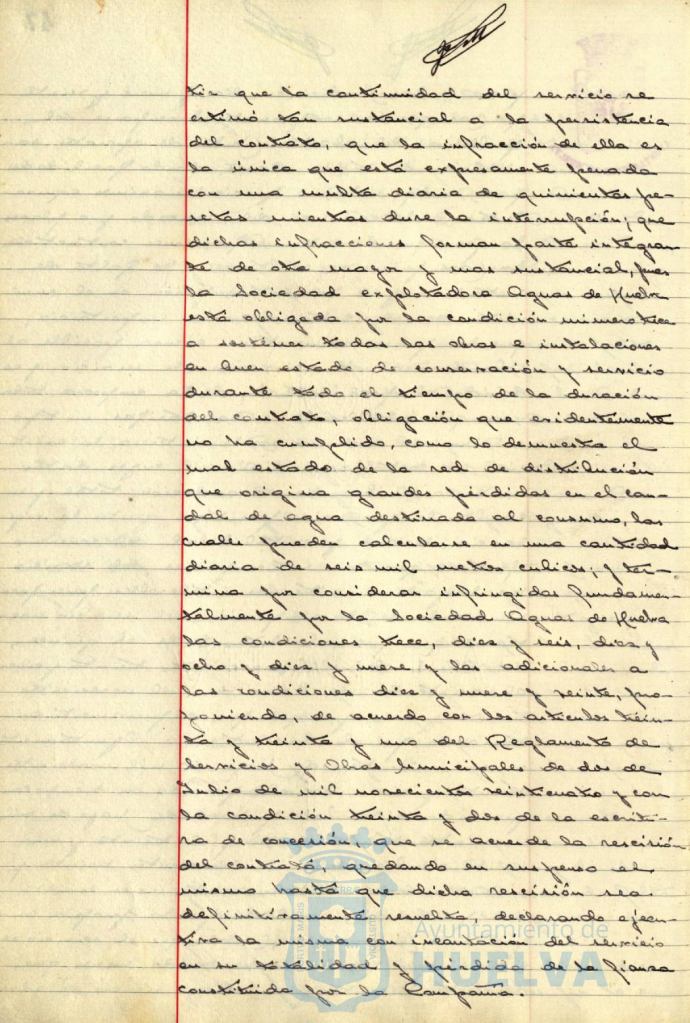 tir que la continuidad del servicio se
estimó tan sustancial a la persistencia
del contrato, que la infracción de ella es
la única que está expresamente penada
con una multa diaria de quinientas pe-
setas mientras dure la interrupción; que
dichas infracciones forman parte integran-
te de otra mayor y mas sustancial, pues
la Sociedad explotadora Aguas de Huelva
está obligada por la condición número trece
a sostener todas las obras e instalaciones
en buen estado de conservación y servicio
durante todo el tiempo de la duración
del contrato, obligación que evidentemente
no ha cumplido, como lo demuestra el
mal estado de la red de distribución
que origina grandes pérdidas en el cau-
dal de agua destinada al consumo, las
cuales pueden calcularse en una cantidad
diaria de seis mil metros cubicos; y ter-
mina por considerar infringidas fundamen-
talmente por la Sociedad Aguas de Huelva
las condiciones trece, diez y seis, diez y
ocho y diez y nueve y las adicionales a
las condiciones diez y nueve y veinte, pro-
poniendo, de acuerdo con los articulos trein-
ta y treinta y uno del Reglamento de
Servicios y Obras Municipales de dos de
Julio de mil novecientos veinticuatro y con
la condición treinta y dos de la escritu-
ra de concesión, que se acuerde la rescisión
del contrato, quedando en suspenso el
mismo hasta que dicha rescisión sea
definitivamente resuelta, declarando ejecu-
tiva la misma con incautación del servicio
en su totalidad y pérdida de la fianza
constituida por la Compañia.
Ayuntamiento de
HUELVA